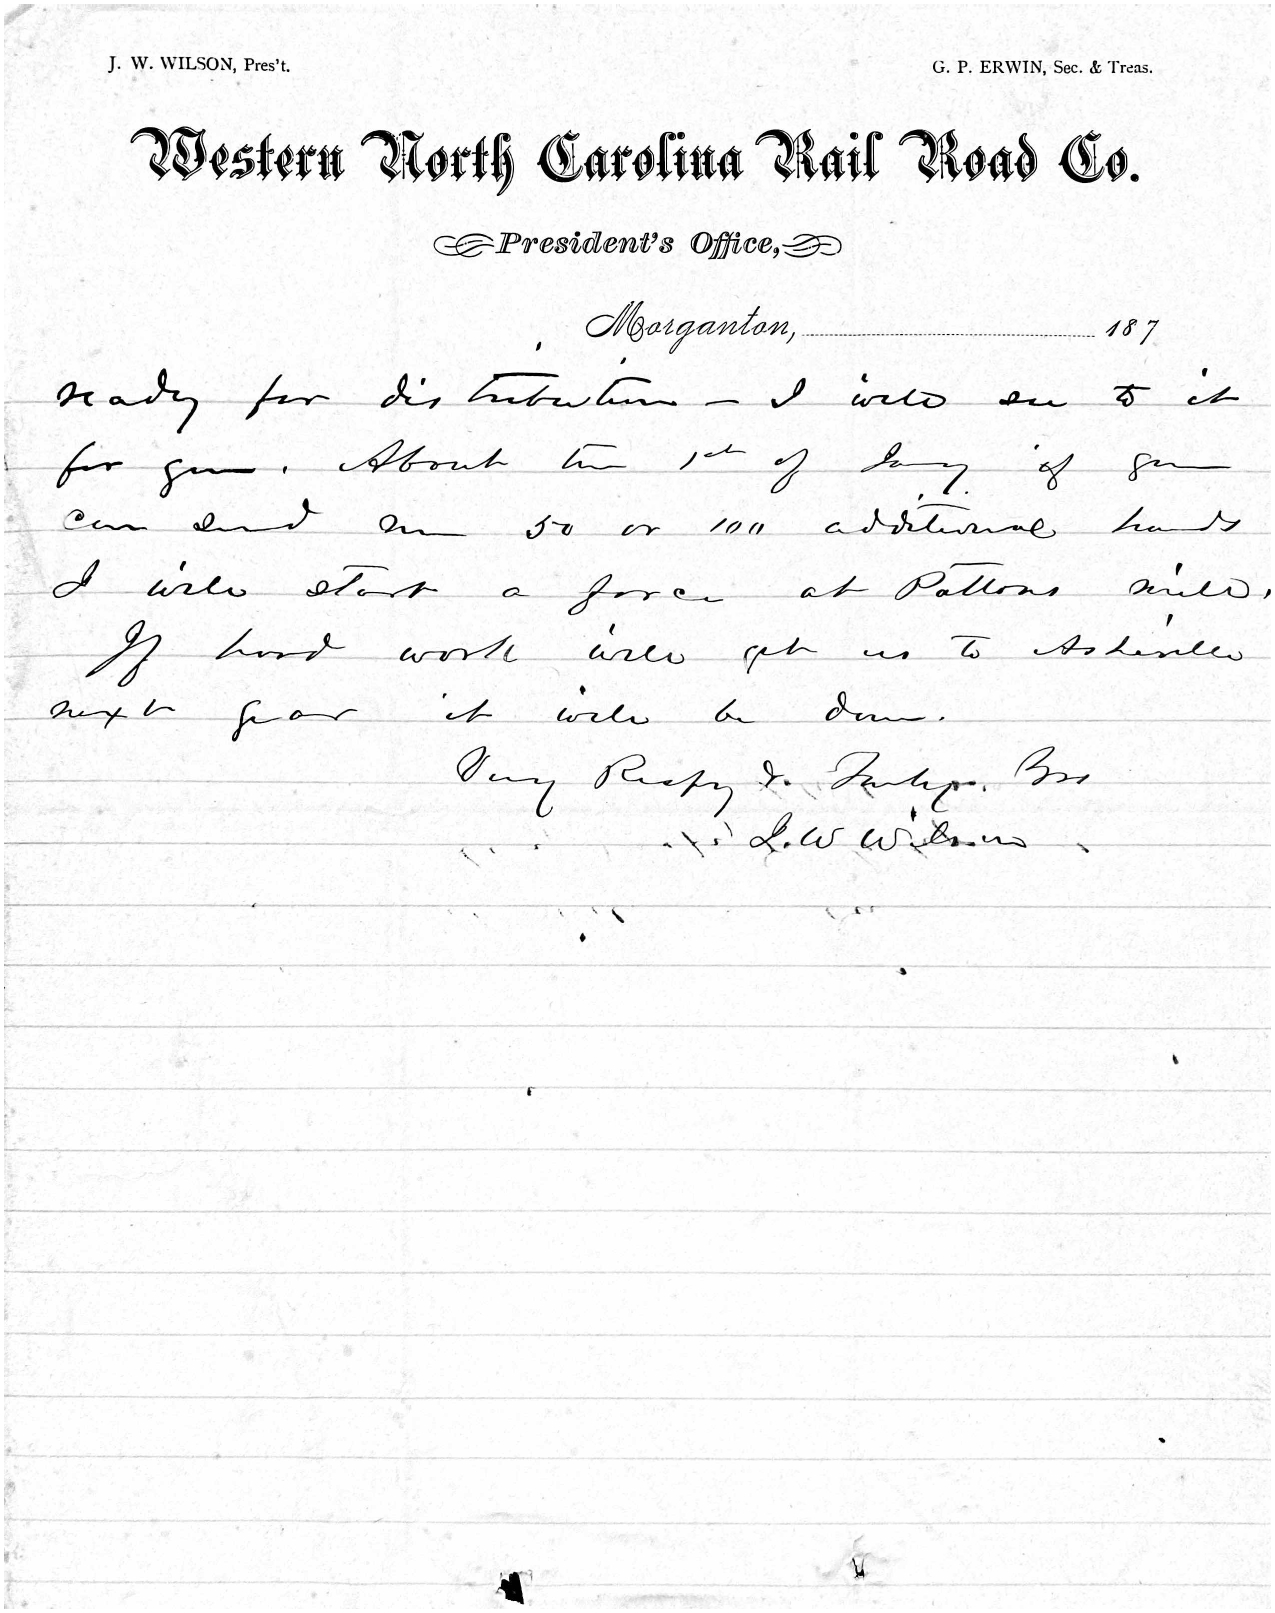 J. W. WILSON, Pres't.
G. P. ERWIN, Sec. & Treas.
Western North Carolina Rail Road Co.
President's Office,
Morganton, 187
ready for distribution — I will see to it
for you. About the 1st of Jany if you
can send me 50 or 100 additional hands
I will start a force at Pattons mill.
If hard work will get us to Asheville
next year it will be done.
Very Respy & Truly Yrs
J. W Wilson